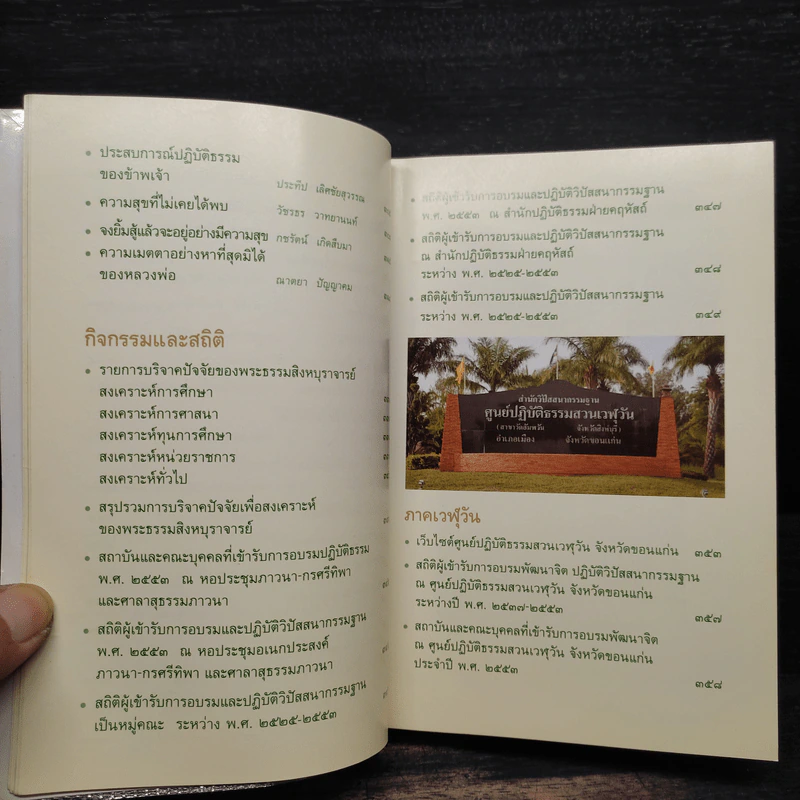 • ประสบการณ์ปฏิบัติธรรม
ของข้าพเจ้า
ประทีป เลิศชัยสุวรรณ
• ความสุขที่ไม่เคยได้พบ
วัชรธร วาทยานนท์
• จงยิ้มสู้แล้วจะอยู่อย่างมีความสุข กชรัตน์ เกิดสืบมา
• ความเมตตาอย่างหาที่สุดมิได้
ของหลวงพ่อ
ณาตยา ปัญญาคม
กิจกรรมและสถิติ
• รายการบริจาคปัจจัยของพระธรรมสิงหบุราจารย์
สงเคราะห์การศึกษา
สงเคราะห์การศาสนา
สงเคราะห์ทุนการศึกษา
สงเคราะห์หน่วยราชการ
สงเคราะห์ทั่วไป
• สรุปรวมการบริจาคปัจจัยเพื่อสงเคราะห์
ของพระธรรมสิงหบุราจารย์
• สถาบันและคณะบุคคลที่เข้ารับการอบรมปฏิบัติธรรม
พ.ศ. ๒๕๕๓ ณ หอประชุมภาวนา-กรศรีทิพา
และศาลาสุธรรมภาวนา
• สถิติผู้เข้ารับการอบรมและปฏิบัติวิปัสสนากรรมฐาน
พ.ศ. ๒๕๕๓ ณ หอประชุมอเนกประสงค์
ภาวนา-กรศรีทิพา และศาลาสุธรรมภาวนา
• สถิติผู้เข้ารับการอบรมและปฏิบัติวิปัสสนากรรมฐาน
เป็นหมู่คณะ ระหว่าง พ.ศ. ๒๕๒๕-๒๕๕๓
• สถิติผู้เข้ารับการอบรมและปฏิบัติวิปัสสนากรรมฐาน
พ.ศ. ๒๕๕๓ ณ สำนักปฏิบัติธรรมฝ่ายคฤหัสถ์ ๓๔๗
• สถิติผู้เข้ารับการอบรมและปฏิบัติวิปัสสนากรรมฐาน
ณ สำนักปฏิบัติธรรมฝ่ายคฤหัสถ์
ระหว่าง พ.ศ. ๒๕๒๕-๒๕๕๓ ๓๔๘
• สถิติผู้เข้ารับการอบรมและปฏิบัติวิปัสสนากรรมฐาน
ระหว่าง พ.ศ. ๒๕๒๕-๒๕๕๓ ๓๔๙
สำนักวิปัสสนากรรมฐาน
ศูนย์ปฏิบัติธรรมสวนเวฬุวัน
(สาขาวัดอัมพวัน จังหวัดสิงห์บุรี)
อำเภอเมือง จังหวัดขอนแก่น
ภาคเวฬุวัน
• เว็บไซต์ศูนย์ปฏิบัติธรรมสวนเวฬุวัน จังหวัดขอนแก่น ๓๕๓
• สถิติผู้เข้ารับการอบรมพัฒนาจิต ปฏิบัติวิปัสสนากรรมฐาน
ณ ศูนย์ปฏิบัติธรรมสวนเวฬุวัน จังหวัดขอนแก่น
ระหว่างปี พ.ศ. ๒๕๓๗-๒๕๕๓ ๓๕๗
• สถาบันและคณะบุคคลที่เข้ารับการอบรมพัฒนาจิต
ณ ศูนย์ปฏิบัติธรรมสวนเวฬุวัน จังหวัดขอนแก่น
ประจำปี พ.ศ. ๒๕๕๓
๓๕๘